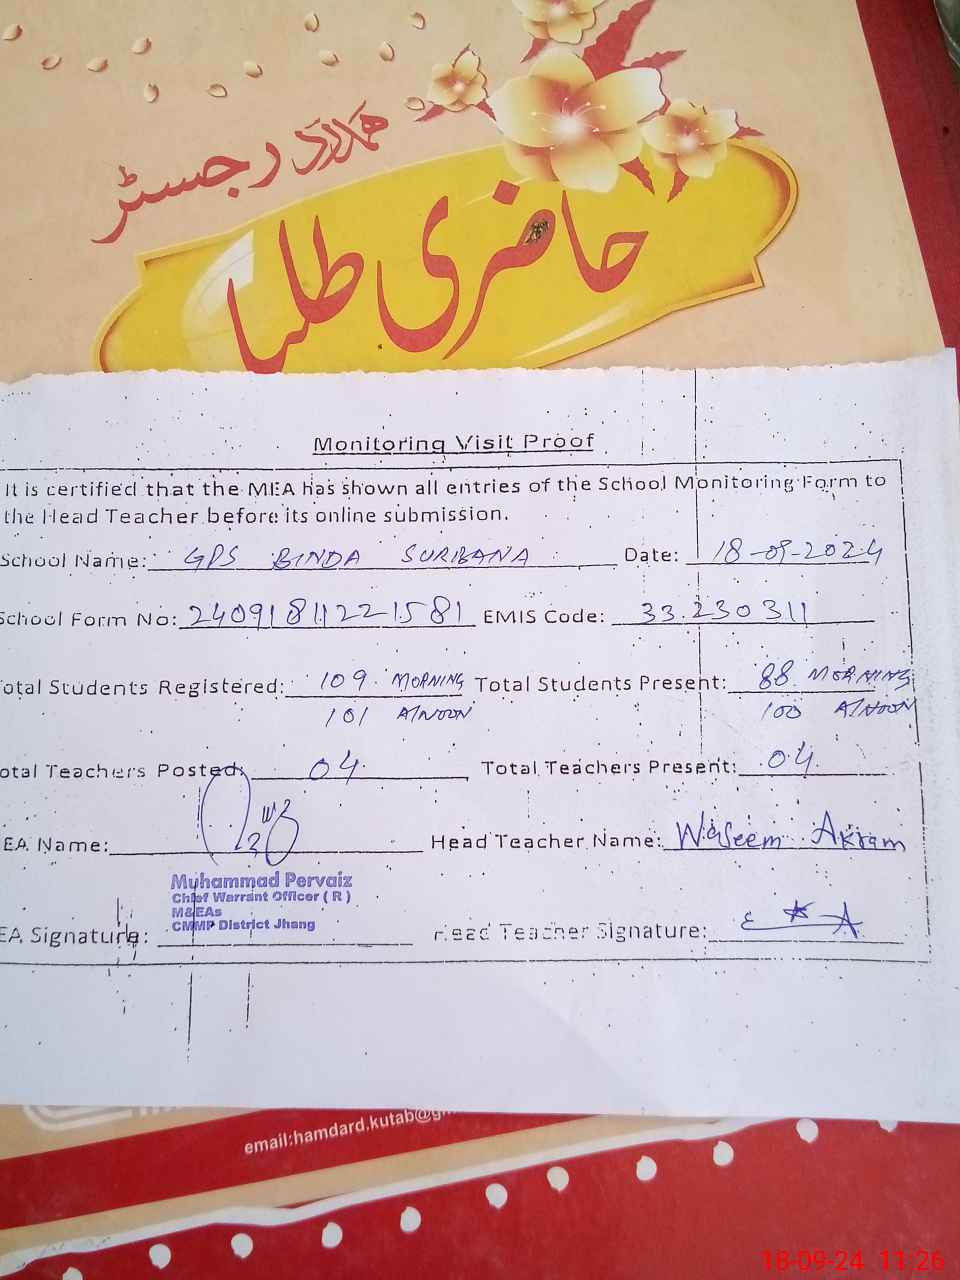 ہمدرد رجسٹر
حاضری طلبا
Monitoring Visit Proof
It is certified that the MEA has shown all entries of the School Monitoring Form to
the Head Teacher before its online submission.
School Name: GPS BINDA SURBANA Date: 18-09-2024
School Form No: 24091811221581 EMIS Code: 33230311
otal Students Registered: 109 MORNING Total Students Present: 88 MORNING
101 A/NOON 100 A/NOON
otal Teachers Posted: 04 Total Teachers Present: 04
EA Name: Head Teacher Name: Waseem Akram
Muhammad Pervaiz
Chief Warrant Officer ( R )
M&EAs
CMMP District Jhang
EA Signature: Head Teacher Signature:
email:hamdard.kutab@g
18-09-24 11:26